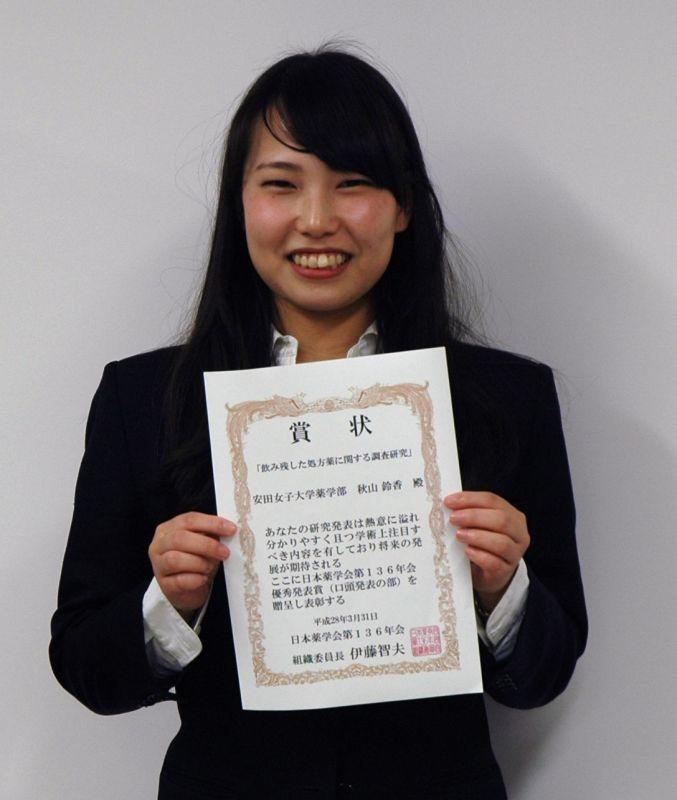 賞状
「飲み残した処方薬に関する調査研究」
安田女子大学薬学部　秋山 鈴香　殿
あなたの研究発表は熱意に溢れ
分かりやすく且つ学術上注目す
べき内容を有しており将来の発
展が期待される
ここに日本薬学会第１３６年会
優秀発表賞（口頭発表の部）を
贈呈し表彰する
平成28年3月31日
日本薬学会第１３６年会
組織委員長　伊藤智夫